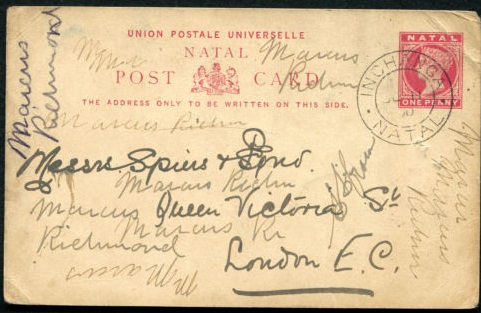 UNION POSTALE UNIVERSELLE
NATAL
POST CARD
THE ADDRESS ONLY TO BE WRITTEN ON THIS SIDE.
NATAL
ONE PENNY
INCHANGA
NATAL
Marcus
Richmond
Marcus
Richm
Marcus Richm
Messrs Spiers & Pond
Marcus Richm
Marcus Queen Victoria St
Marcus
Richmond
London E.C.
Marcus
Marcus
Richm